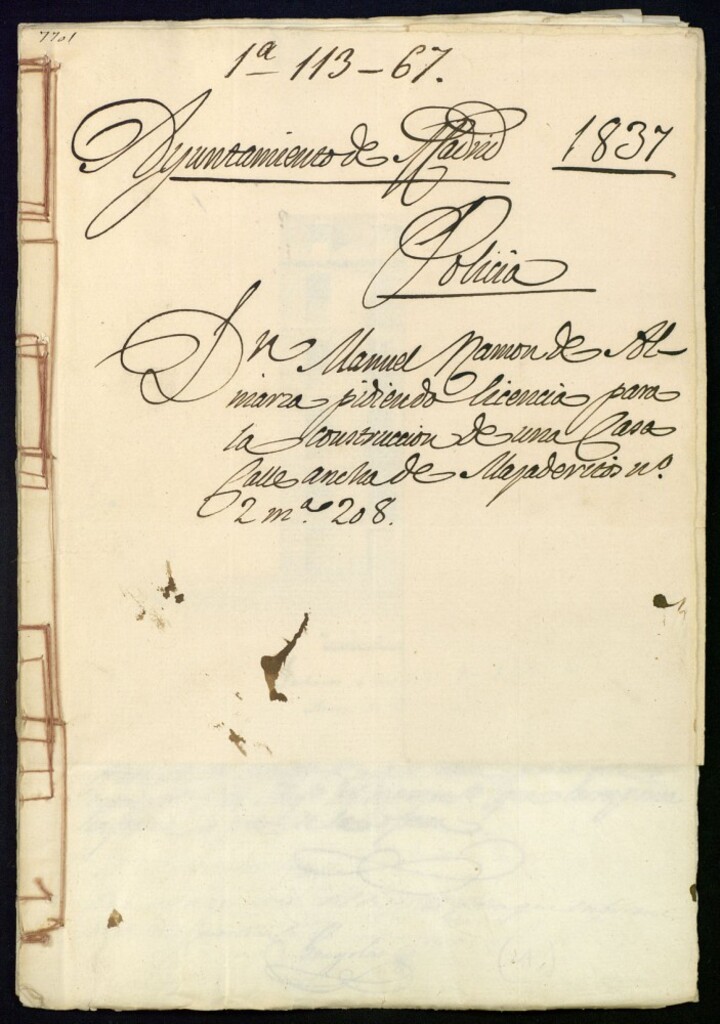 7701
1ª 113-67.
Ayuntamiento de Madrid 1837
Policia
Dn Manuel Ramon de Al-
marza pidiendo licencia para
la construccion de una Casa
Calle ancha de Majadericos nº
2 mª 208.